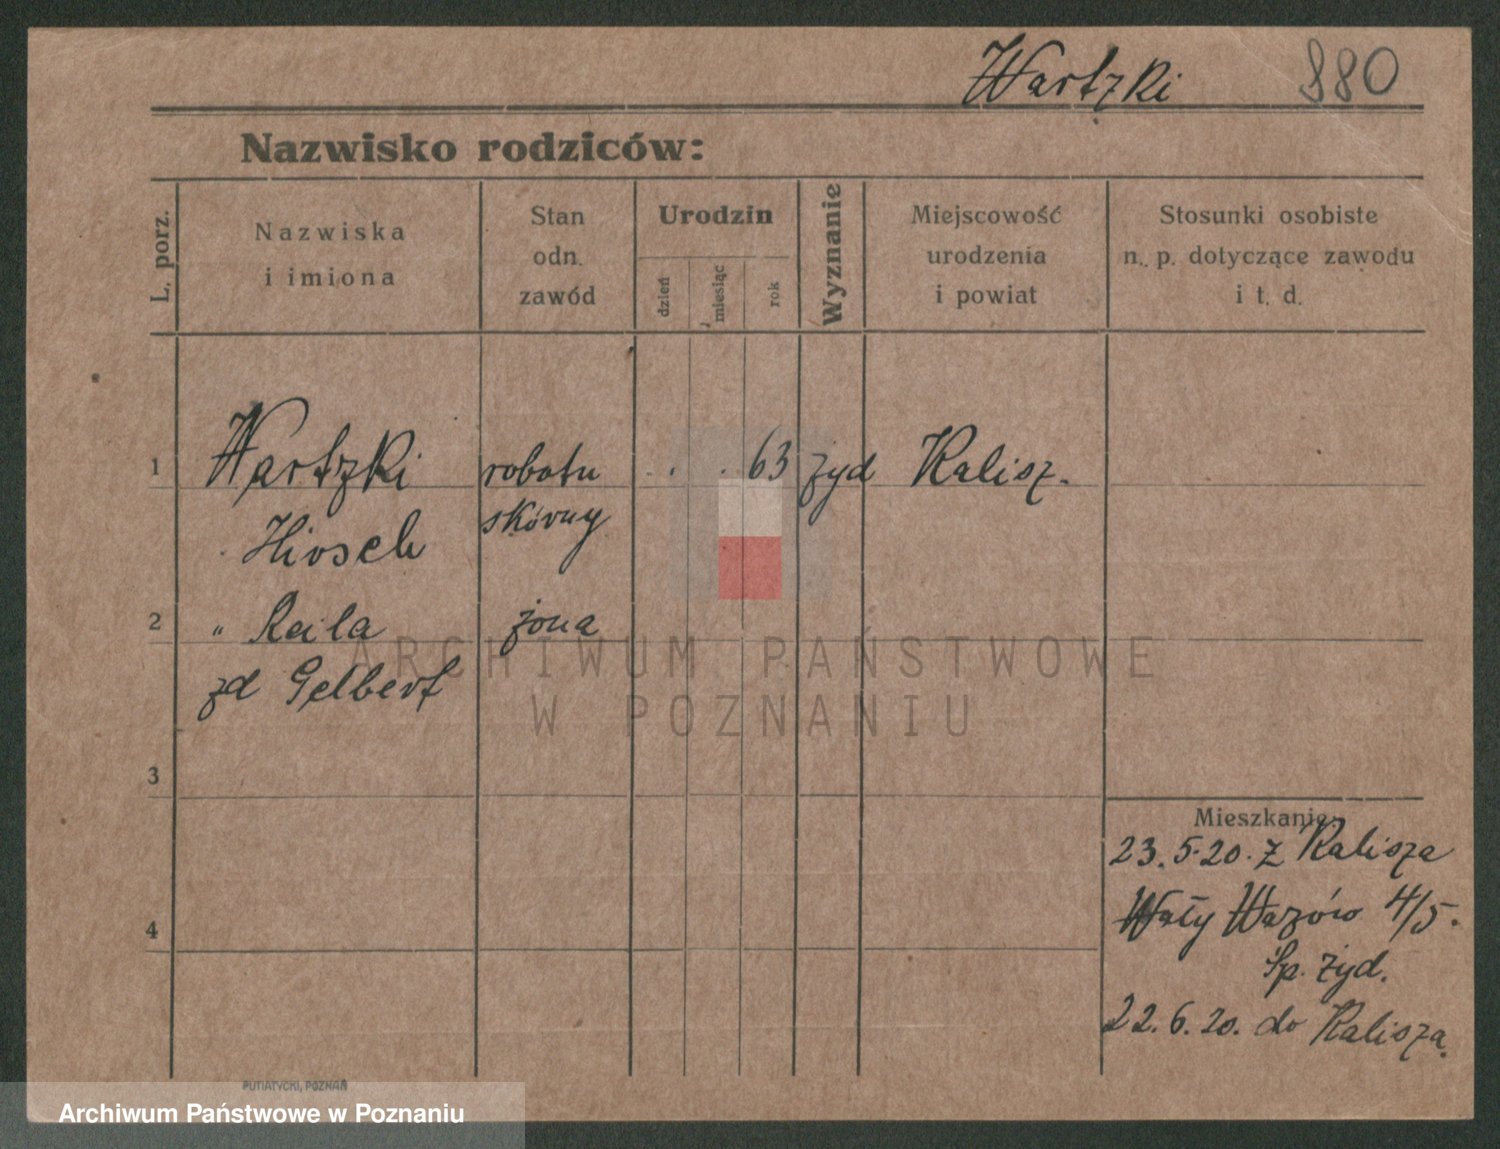 Wartzki 880
Nazwisko rodziców:
L. porz.
Nazwiska
i imiona
Stan
odn.
zawód
Urodzin
dzień
miesiąc
rok
Wyznanie
Miejscowość
urodzenia
i powiat
Stosunki osobiste
n. p. dotyczące zawodu
i t. d.
1 Wartzki robotn . . 63 żyd Kalisz.
Hirsch skórny
2 " Raila żona
zd Gelbert
3
4
Mieszkanie:
23.5.20. z Kalisza
Wały Wazów 4/5.
Sp. żyd.
22.6.20. do Kalisza.
PUTIATYCKI, POZNAŃ
ARCHIWUM PAŃSTWOWE
W POZNANIU
Archiwum Państwowe w Poznaniu